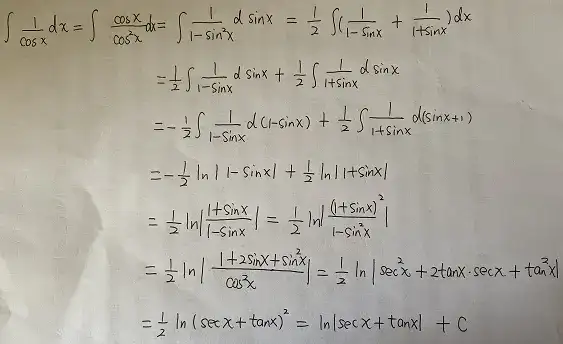 ∫ 1/cosx dx = ∫ cosx/cos²x dx = ∫ 1/(1-sin²x) d sinx = 1/2 ∫(1/(1-sinx) + 1/(1+sinx))dx
= 1/2 ∫ 1/(1-sinx) d sinx + 1/2 ∫ 1/(1+sinx) d sinx
= -1/2 ∫ 1/(1-sinx) d(1-sinx) + 1/2 ∫ 1/(1+sinx) d(sinx+1)
= -1/2 ln|1-sinx| + 1/2 ln|1+sinx|
= 1/2 ln|(1+sinx)/(1-sinx)| = 1/2 ln|(1+sinx)²/(1-sin²x)|
= 1/2 ln|(1+2sinx+sin²x)/cos²x| = 1/2 ln|sec²x + 2tanx·secx + tan²x|
= 1/2 ln(secx+tanx)² = ln|secx+tanx| + C